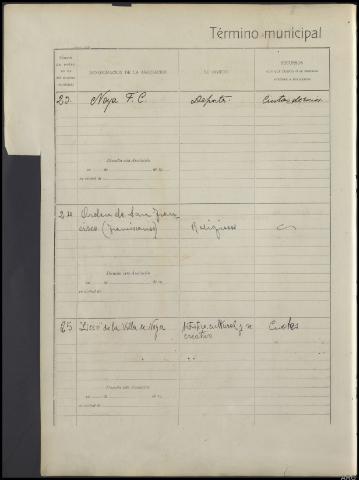 Término municipal
DENOMINACIÓN DE LA ASOCIACIÓN
SU OBJETO
RECURSOS
23. Noya F. C. Deporte. Cuotas de socios
Disuelta esta Asociación
en de de 19
en virtud de
24 Orden de San Fran-
cisco (Franciscanos) Religioso
Disuelta esta Asociación
en de de 19
en virtud de
25 Liceo de la Villa de Noya Artístico, cultural y re
creativo Cuotas
Disuelta esta Asociación
en de de 19
en virtud de